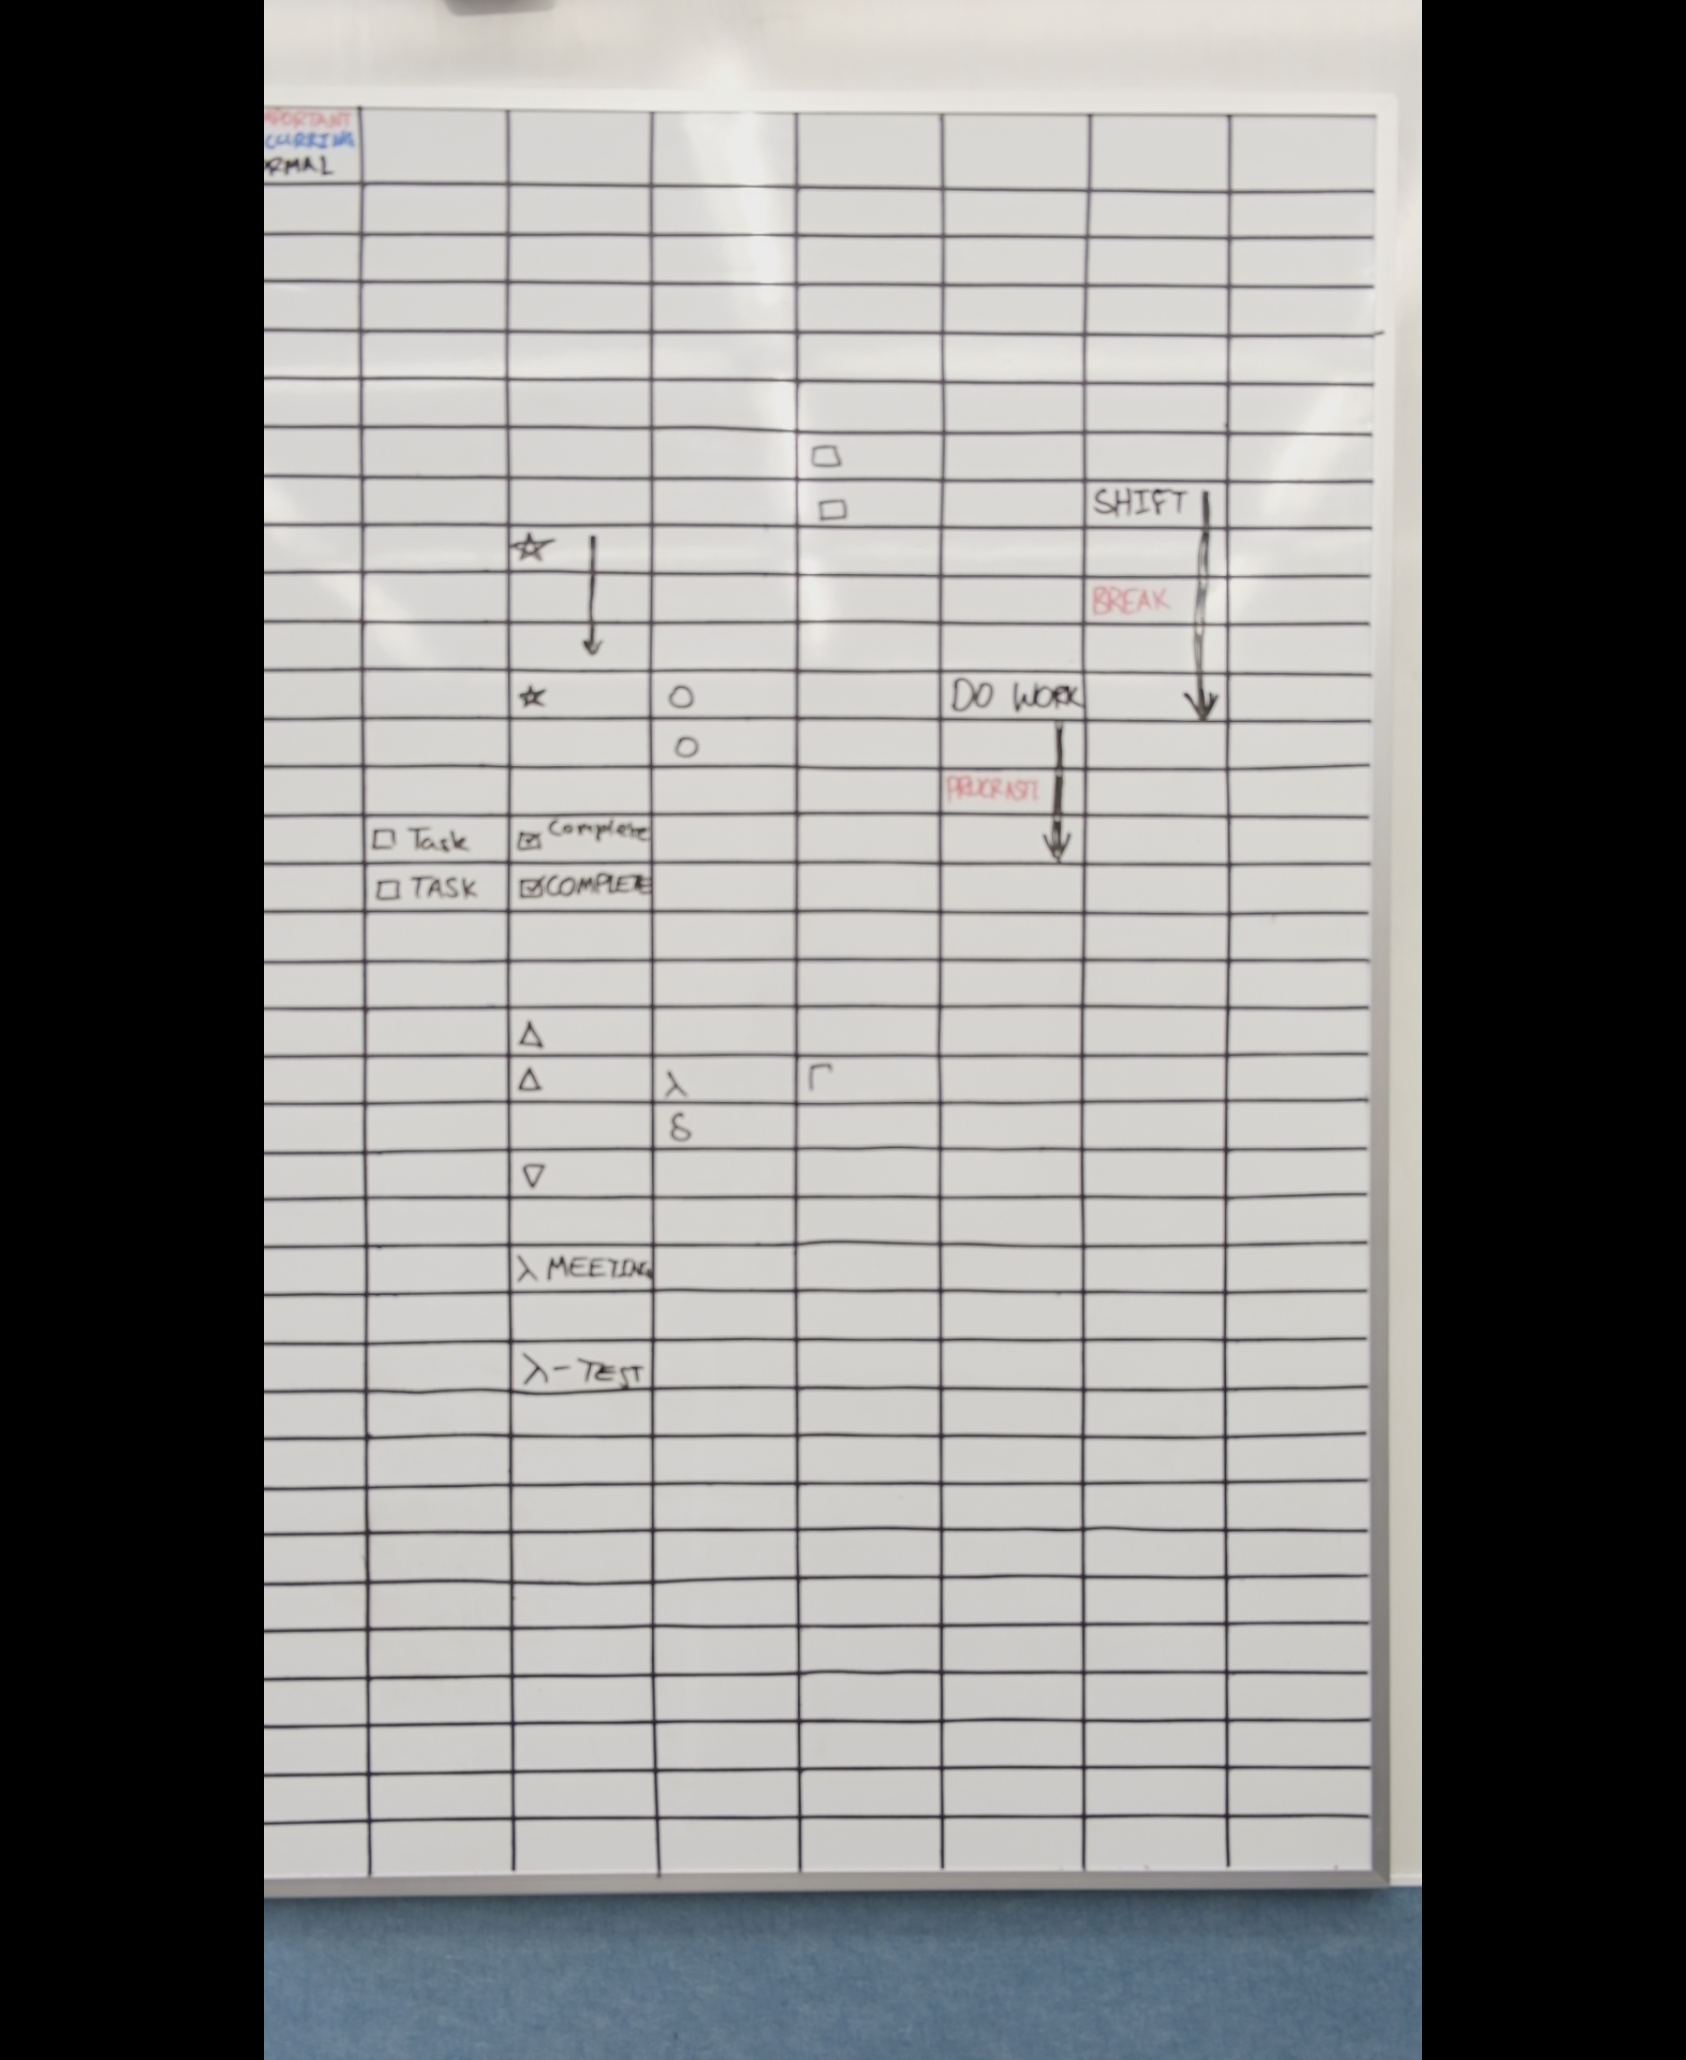 MPORTANT
CURRING
ORMAL
□
□
SHIFT
☆
BREAK
☆ ○ DO WORK
○
□ Task ☑ Complete
□ TASK ☑ COMPLETE
△
△ λ Γ
δ
▽
λ MEETING
λ - TEST